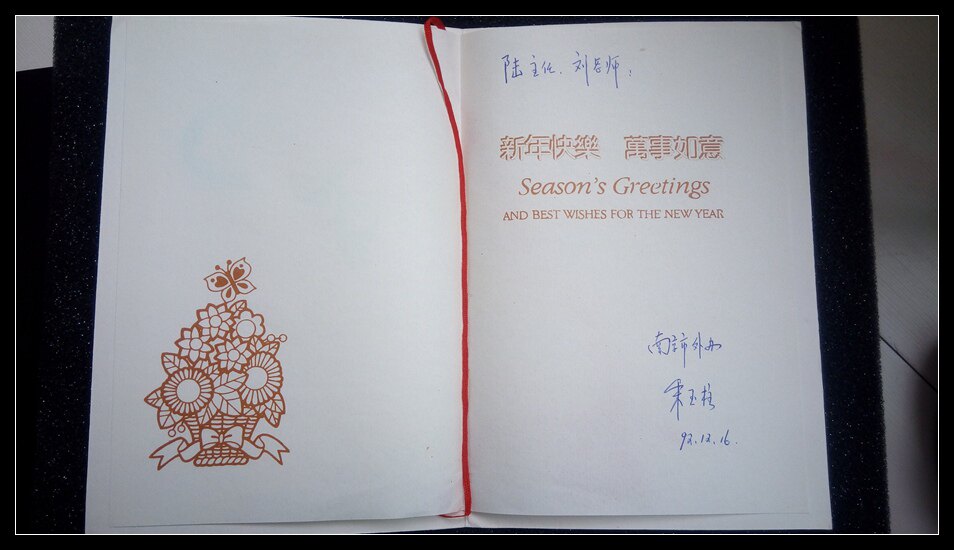 陆主任、刘老师:
新年快樂 萬事如意
Season's Greetings
AND BEST WISHES FOR THE NEW YEAR
南京市外办
玉柱
92.12.16.